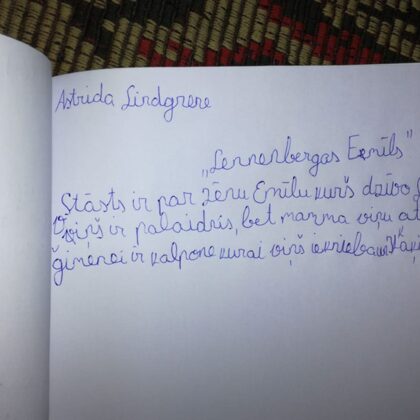 Astrida Lindgrene
„Lennenbergas Emīls"
Stāsts ir par zēnu Emīlu kurš dzīvo
viņš ir palaidnis, bet mamma viņu
ģimenei ir kalpone kurai viņš ieknieba